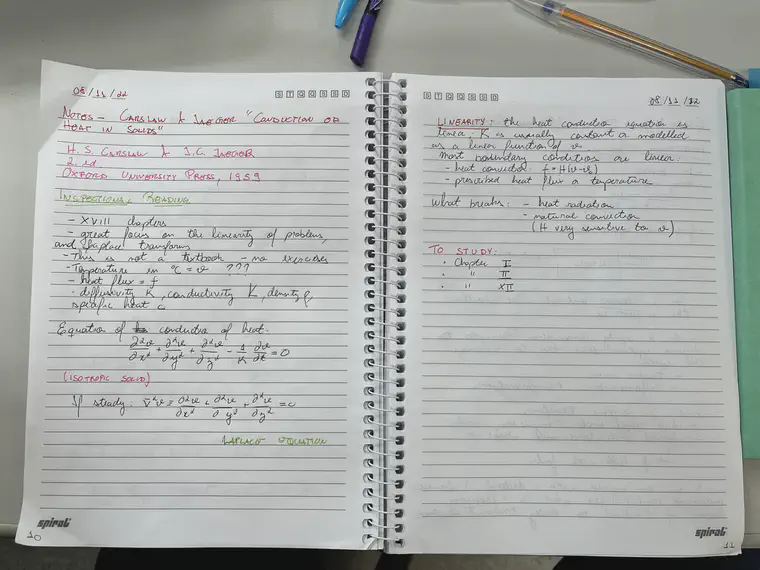 08/11/22
S T Q Q S S D
NOTES - CARSLAW & JAEGER "CONDUCTION OF
HEAT IN SOLIDS"
H. S. CARSLAW & J.C. JAEGER
2. ed
OXFORD UNIVERSITY PRESS, 1959
INSPECTIONAL READING
- XVIII chapters
- great focus on the linearity of problems,
and Laplace transforms
- This is not a textbook - no exercises
- Temperature in °C = v ???
- heat flux = f
- diffusivity κ, conductivity K, density ρ,
specific heat c
Equation of conduction of heat.
∂²v/∂x² + ∂²v/∂y² + ∂²v/∂z² - 1/κ ∂v/∂t = 0
(ISOTROPIC SOLID)
If steady: ∇²v = ∂²v/∂x² + ∂²v/∂y² + ∂²v/∂z² = 0
LAPLACE EQUATION
spiral
10
S T Q Q S S D
08/11/22
LINEARITY: the heat conduction equation is
linear. K is usually constant or modelled
as a linear function of v
most boundary conditions are linear
- heat convection f = H(v-v₀)
- prescribed heat flux or temperature
What breaks: - heat radiation
- natural convection
(H very sensitive to v)
TO STUDY:
• Chapter I
• " II
• " XII
spiral
11